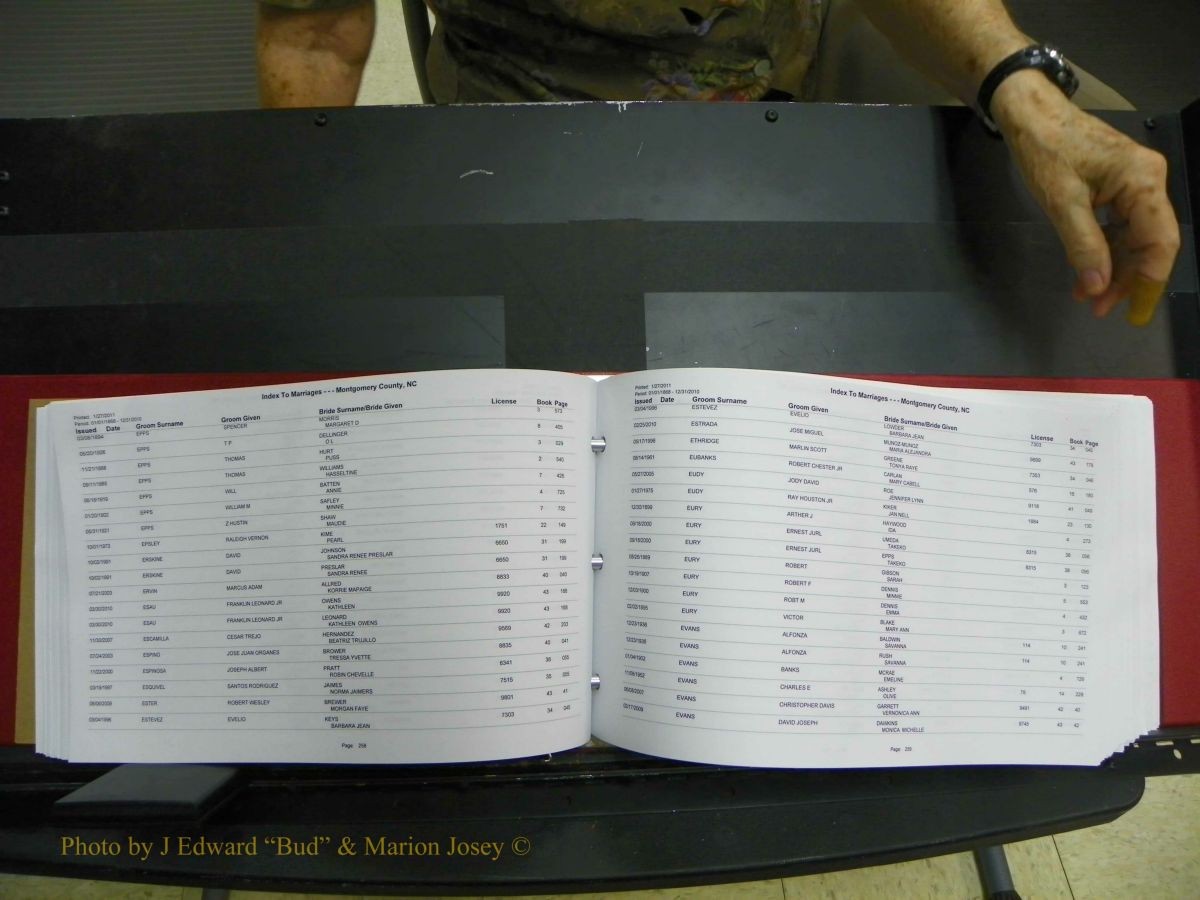 Printed: 1/27/2011
Period: 01/01/1868 - 12/31/2010
Index To Marriages - - - Montgomery County, NC
Issued Date Groom Surname Groom Given Bride Surname/Bride Given License Book Page
EPPS SPENDER MORRIS 3 573
MARGARET D
EPPS T P DELLINGER 8 405
O L
EPPS THOMAS HURT 3 029
PUSS
EPPS THOMAS WILLIAMS 2 540
HASSELTINE
EPPS WILL BATTEN 7 425
ANNIE
EPPS WILLIAM M SAFLEY 4 725
MINNIE
EPPS Z HUSTIN SHAW 7 732
MAUDIE
10/01/1973 EPSLEY RALEIGH VERNON KIME 1751 22 149
PEARL
10/02/1991 ERSKINE DAVID JOHNSON 6650 31 199
SANDRA RENEE PRESLAR
10/02/1991 ERSKINE DAVID PRESLAR 6650 31 199
SANDRA RENEE
07/21/2003 ERVIN MARCUS ADAM ALLRED 8833 40 040
KORRIE MAPAIGE
03/30/2010 ESAU FRANKLIN LEONARD JR OWENS 9920 43 168
KATHLEEN
03/30/2010 ESAU FRANKLIN LEONARD JR LEONARD 9920 43 168
KATHLEEN OWENS
11/30/2007 ESCAMILLA CESAR TREJO HERNANDEZ 9569 42 203
BEATRIZ TRUJILLO
07/24/2003 ESPINO JOSE JUAN ORGANES BROWER 8835 40 041
TRESSA YVETTE
11/22/2000 ESPINOSA JOSEPH ALBERT PRATT 6341 38 055
ROBIN CHEVELLE
03/19/1997 ESQUIVEL SANTOS RODRIGUEZ JAIMES 7515 35 005
NORMA JAIMERS
ESTER ROBERT WESLEY BREWER 9801 43 41
MORGAN FAYE
03/04/1996 ESTEVEZ EVELIO KEYS 7303 34 040
BARBARA JEAN
Page 258
Printed: 1/27/2011
Period: 01/01/1868 - 12/31/2010
Index To Marriages - - - Montgomery County, NC
Issued Date Groom Surname Groom Given Bride Surname/Bride Given License Book Page
03/04/1996 ESTEVEZ EVELIO LOWDER 7303 34 040
BARBARA JEAN
02/25/2010 ESTRADA JOSE MIGUEL MUNOZ-MUNOZ 43
MARIA ALEJANDRA
ETHRIDGE MARLIN SCOTT GREENE 7353 34
TONYA RAYE
05/14/1961 EUBANKS ROBERT CHESTER JR CARLAN 576
MARY CABELL
05/27/2005 EUDY JODY DAVID ROE 9118 41
JENNIFER LYNN
01/27/1975 EUDY RAY HOUSTON JR KIKER 1984 23 130
JAN NELL
12/30/1899 EURY ARTHER J HAYWOOD 4 273
IDA
09/18/2000 EURY ERNEST JURL UMEDA 8315 38 056
TAKEKO
09/18/2000 EURY ERNEST JURL EPPS 8315 38 056
TAKEKO
EURY ROBERT GIBSON 3 123
SARAH
EURY ROBERT F DENNIS 5 553
MINNIE
EURY ROBT M DENNIS 4 402
EMMA
EURY VICTOR BLAKE 3 672
MARY ANN
12/23/1938 EVANS ALFONZA BALDWIN 114 10 241
SAVANNA
12/23/1938 EVANS ALFONZA RUSH 114 10 241
SAVANNA
01/04/1902 EVANS BANKS MCRAE 4
EMELINE
11/08/1952 EVANS CHARLES E ASHLEY 14 229
OLIVE
EVANS CHRISTOPHER DAVIS GARRETT 9491 42 40
VERNONICA ANN
EVANS DAVID JOSEPH DAWKINS 9745 43 42
MONICA MICHELLE
Page 259
Photo by J Edward “Bud” & Marion Josey ©